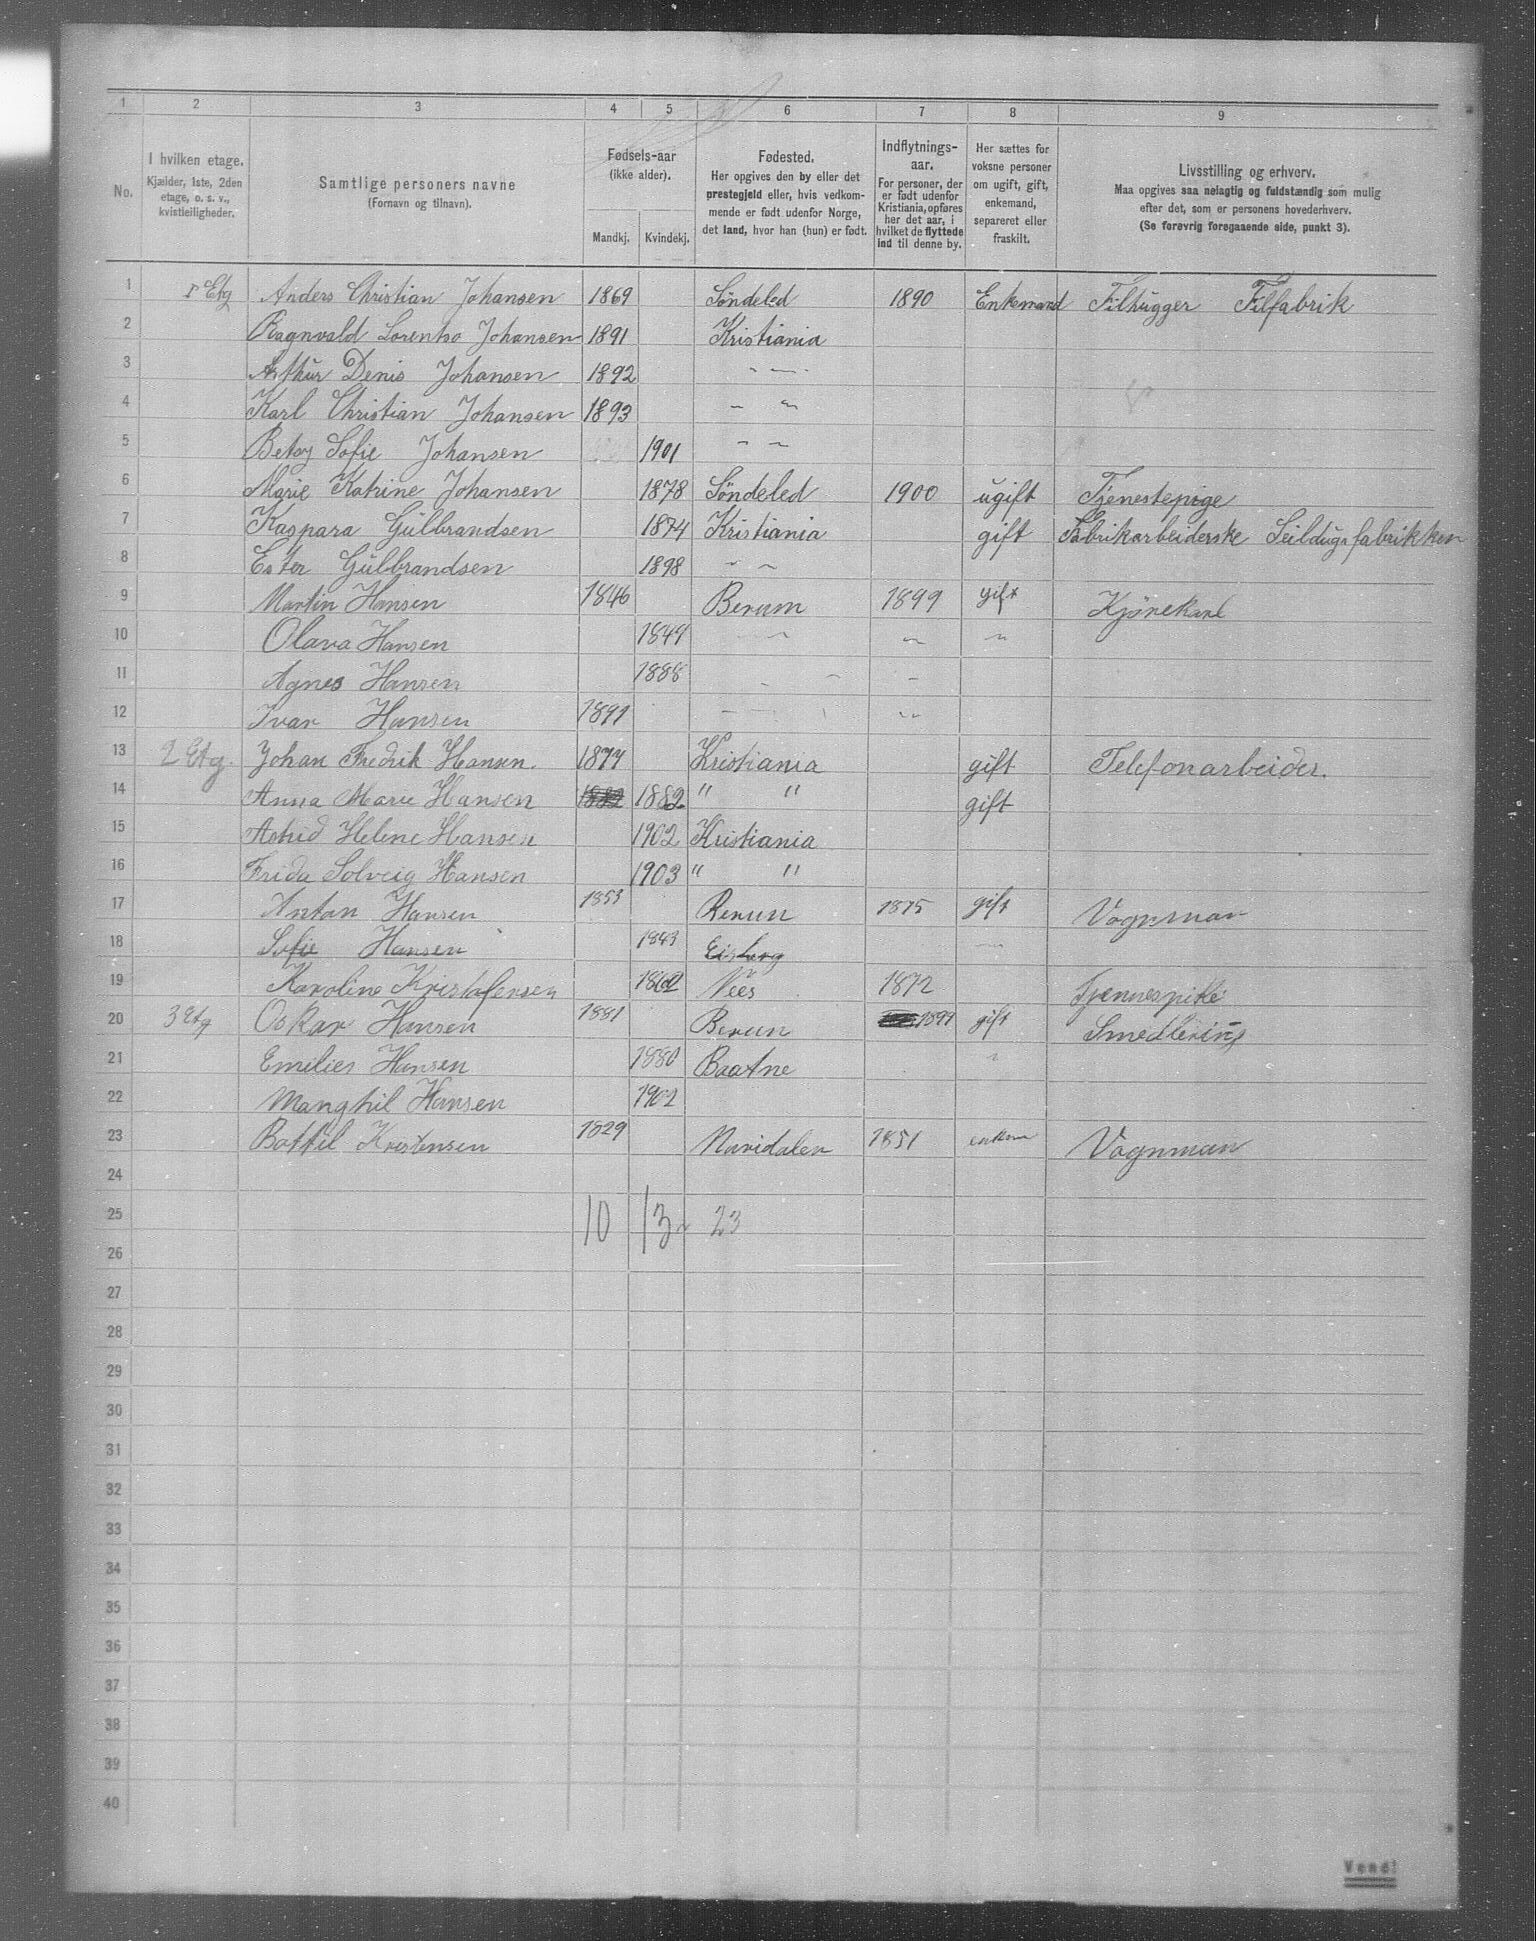 1 2 3 4 5 6 7 8 9
No.
I hvilken etage.
Kjælder, 1ste, 2den
etage, o. s. v.,
kvistleiligheder.
Samtlige personers navne
(Fornavn og tilnavn).
Fødsels-aar
(ikke alder).
Mandkj. Kvindekj.
Fødested.
Her opgives den by eller det
prestegjeld eller, hvis vedkom-
mende er født udenfor Norge,
det land, hvor han (hun) er født.
Indflytnings-
aar.
For personer, der
er født udenfor
Kristiania, opføres
her det aar, i
hvilket de flyttede
ind til denne by.
Her sættes for
voksne personer
om ugift, gift,
enkemand,
separeret eller
fraskilt.
Livsstilling og erhverv.
Maa opgives saa nøiagtig og fuldstændig som mulig
efter det, som er personens hovederhverv.
(Se forøvrig foregaaende side, punkt 3).
1 Etg Anders Christian Johansen 1869 Söndeled 1890 Enkemand Filhugger Filfabrik
2 Ragnvald Lorentso Johansen 1891 Kristiania
3 Arthur Denis Johansen 1892 " "
4 Karl Christian Johansen 1893 " "
5 Betsy Sofie Johansen 1901 " "
6 Marie Katrine Johansen 1878 Söndeled 1900 ugift Tjenestepige
7 Kaspara Gulbrandsen 1874 Kristiania gift Fabrikarbeiderske Seildugsfabrikken
8 Ester Gulbrandsen 1898 " "
9 Martin Hansen 1846 Berum 1899 gift Kjørekarl
10 Olava Hansen 1849 " " "
11 Agnes Hansen 1888 " "
12 Ivar Hansen 1891 " "
13 2 Etg. Johan Fredrik Hansen. 1877 Kristiania gift Telefonarbeider.
14 Anna Marie Hansen 1882 1882 " " gift
15 Astrid Helene Hansen 1902 Kristiania
16 Frida Solveig Hansen 1903 " "
17 Anton Hansen 1853 Berum 1875 gift Vognman
18 Sofie Hansen 1843 "
19 Karoline Kristofersen 1862 Nees 1872 Tjennespike
20 3 Etg Oskar Hansen 1881 Berum 1899 gift Smedlering
21 Emilies Hansen 1880 Baatne "
22 Manghil Hansen 1902
23 Bottil Kristensen 1829 Maridalen 1851 enkem Vognman
24
25 10 13 23
26
27
28
29
30
31
32
33
34
35
36
37
38
39
40
Vend!